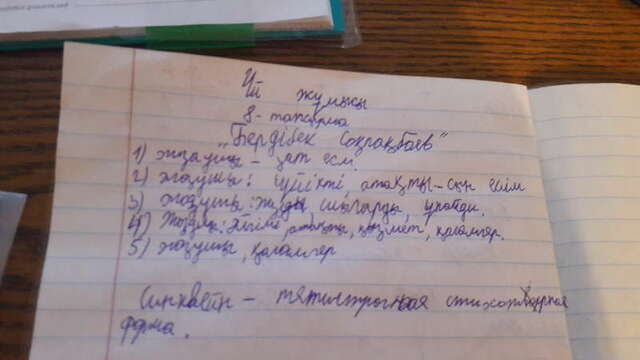 Үй жұмысы
8-тапсырма
"Бердібек Соқпақбаев"
1) жазушы - зат есім.
2) жазушы: сүйікті, атақты-сын есім
3) жазушы: жазды, шығарды, ұнайды.
4) Жазушы: атақты, қызмет, қаламгер.
5) жазушы, қаламгер
Синквейн - пятистрочная стихотворная
форма.